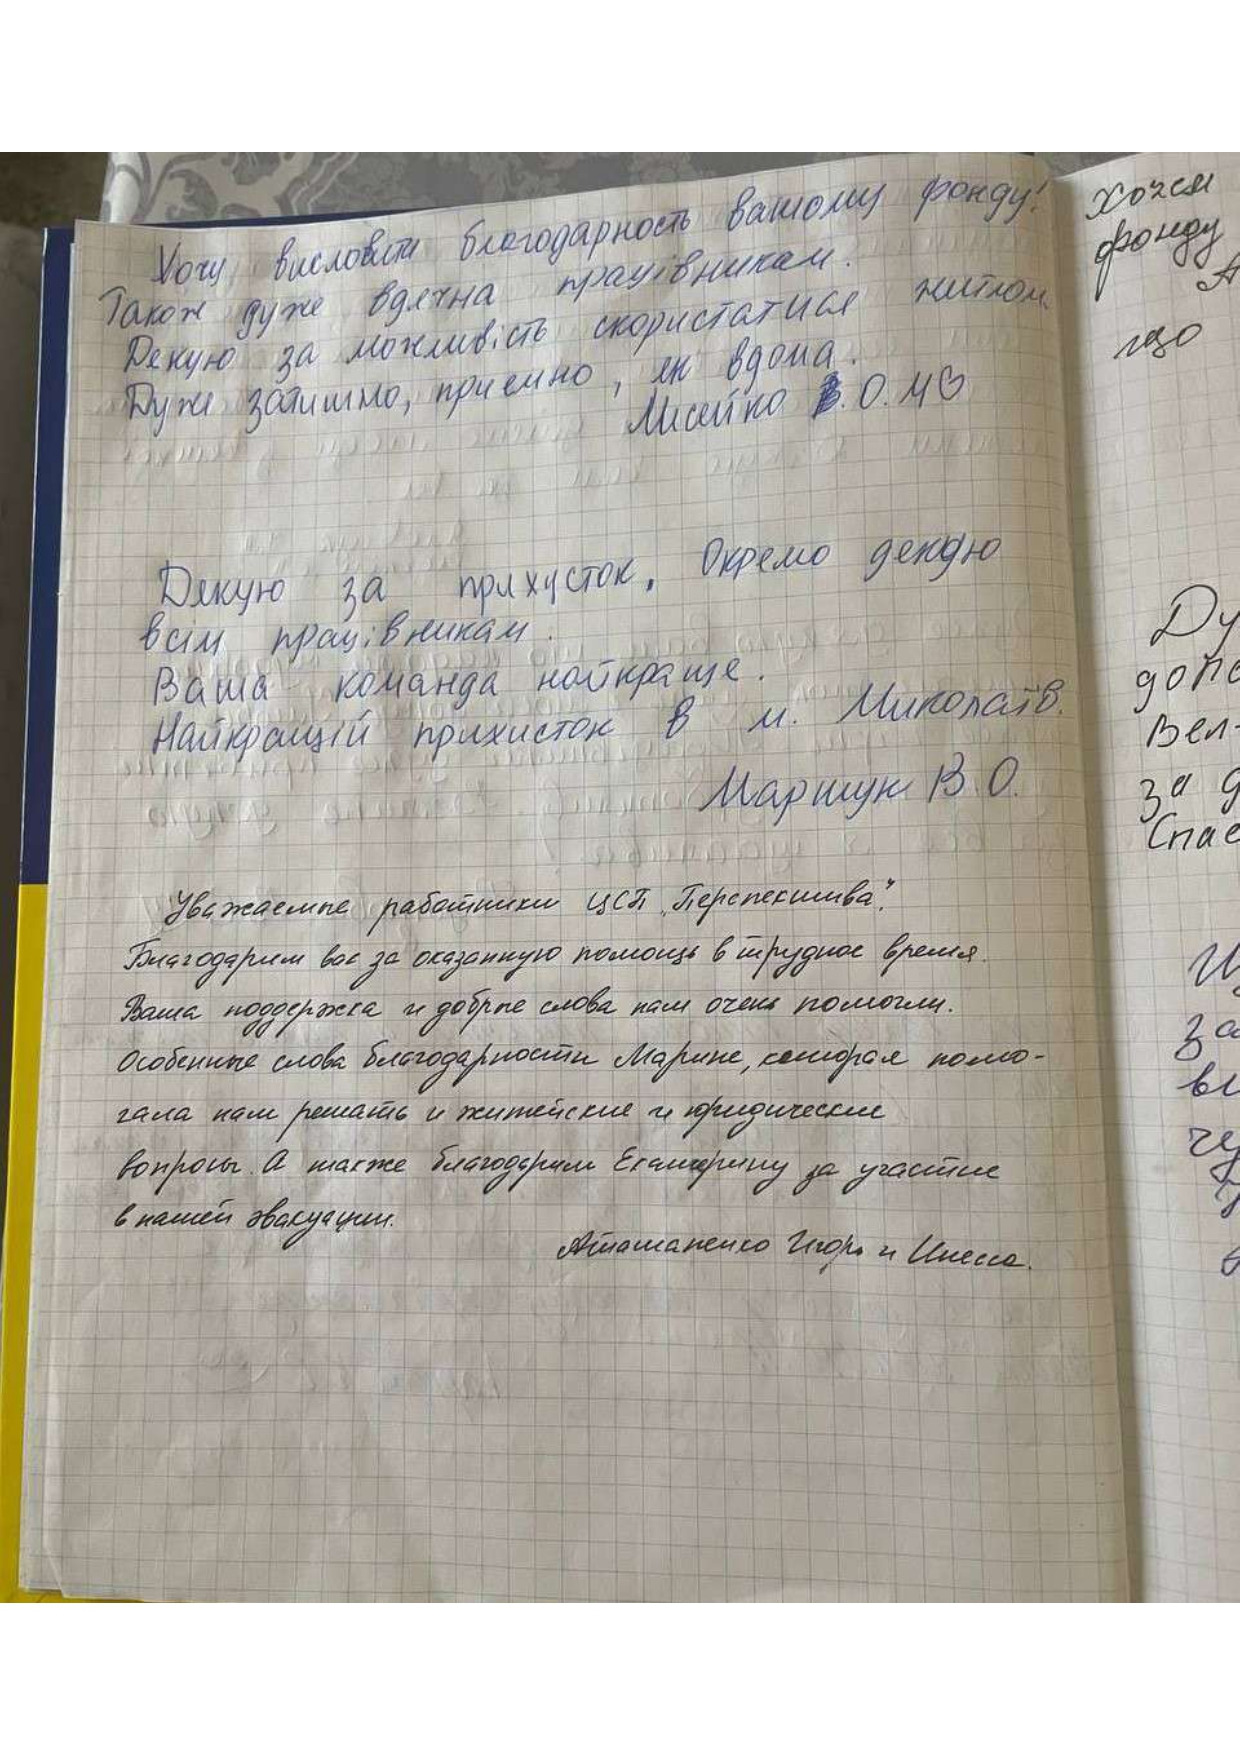 Хочу висловити благодарность вашому фонду!
Також дуже вдячна працівникам.
Дякую за можливість скористатися житлом.
Дуже затишно, приємно, як вдома.
О.
Дякую за прихусток, Окремо дякую
всім працівникам.
Ваша команда найкраще.
Найкращій прихисток в м. Миколаїв.
Маршук В.О.
Уважаемые работники ЦСП „Перспектива".
Благодарим вас за оказанную помощь в трудное время.
Ваша поддержка и добрые слова нам очень помогли.
Особенные слова благодарности Марине, которая помо-
гала нам решать и житейские и юридические
вопросы. А также благодарим Екатерину за участие
в нашей эвакуации.
Аташаненко Игорь и Инесса.
Хочем
фонду
що
Ду
допо
Вел-
за д
Спас
за